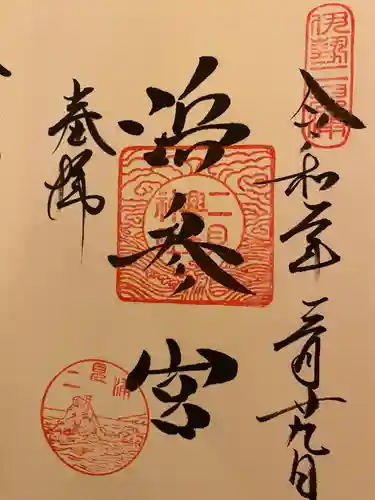 伊勢二見浦
令和二年三月廿九日
浜参宮
二見興玉神社
奉拝
二見浦